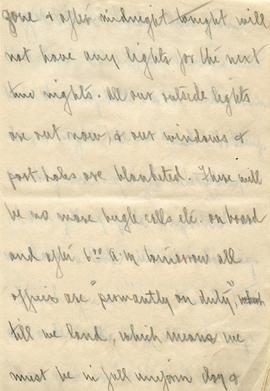 zone & after midnight tonight will
not have any lights for the next
two nights. All our outside lights
are out now, & our windows &
port holes are blanketed. There will
be no more bugle calls etc. on board
and after 6 00 a.m tomorrow all
officers are "permantly on duty",
till we land, which means we
must be in full uniform day &